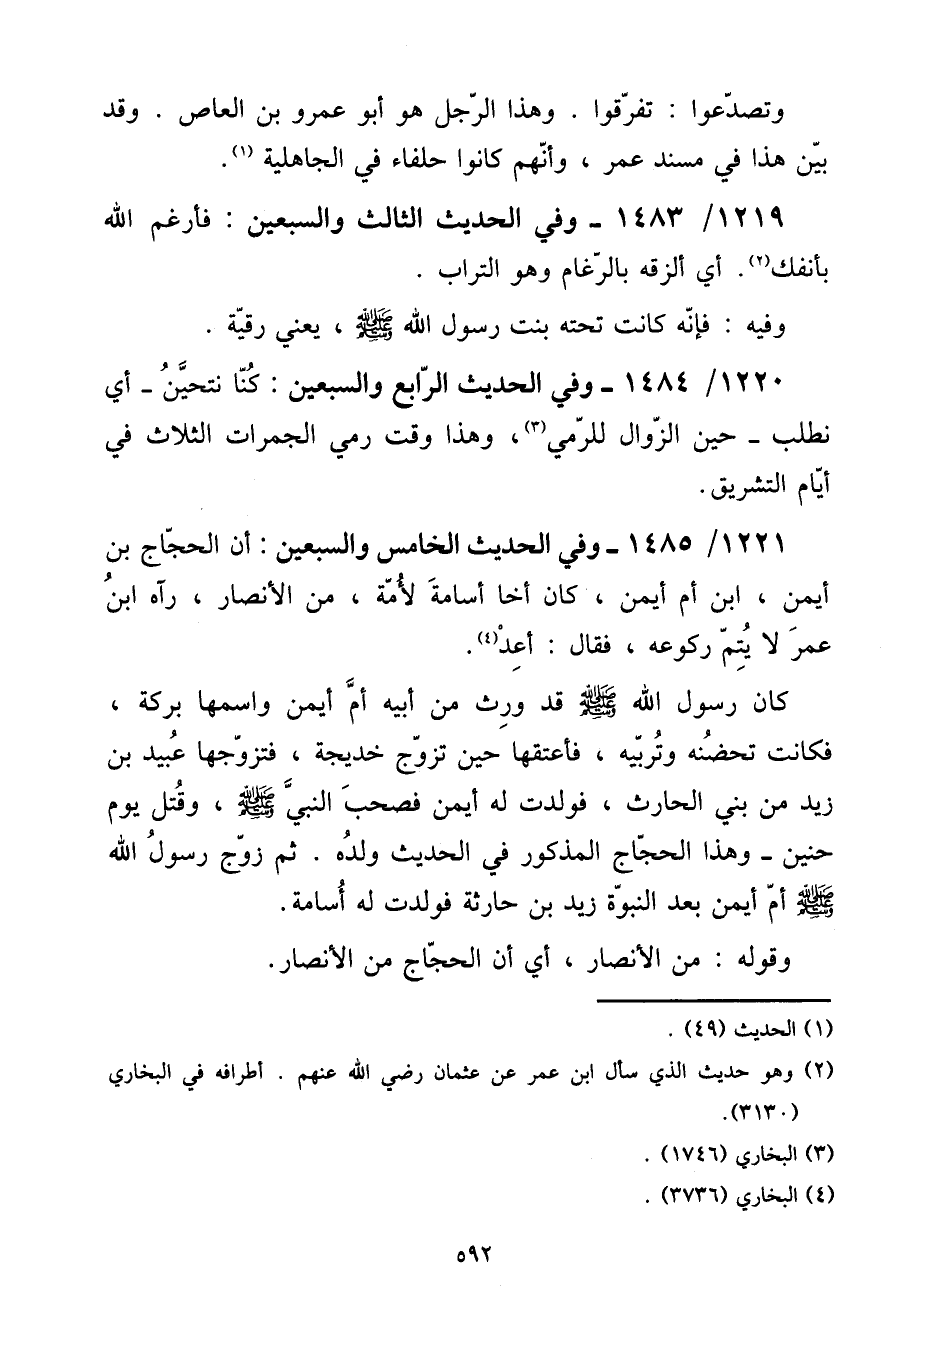 وتصدّعوا : تفرّقوا . وهذا الرّجل هو أبو عمرو بن العاص . وقد
بيّن هذا في مسند عمر ، وأنّهم كانوا حلفاء في الجاهلية (١).
١٢١٩/ ١٤٨٣ ـ وفي الحديث الثالث والسبعين : فأرغم الله
بأنفك(٢). أي ألزقه بالرّغام وهو التراب .
وفيه : فإنّه كانت تحته بنت رسول الله ﷺ ، يعني رقيّة .
١٢٢٠/ ١٤٨٤ ـ وفي الحديث الرّابع والسبعين : كُنّا نتحيَّنُ ـ أي
نطلب ـ حين الزّوال للرّمي(٣)، وهذا وقت رمي الجمرات الثلاث في
أيّام التشريق.
١٢٢١/ ١٤٨٥ ـ وفي الحديث الخامس والسبعين : أن الحجّاج بن
أيمن ، ابن أم أيمن ، كان أخا أسامةَ لأُمّة ، من الأنصار ، رآه ابنُ
عمرَ لا يُتِمّ ركوعه ، فقال : أعِدْ(٤).
كان رسول الله ﷺ قد ورِث من أبيه أمَّ أيمن واسمها بركة ،
فكانت تحضُنه وتُربّيه ، فأعتقها حين تزوّج خديجة ، فتزوّجها عُبيد بن
زيد من بني الحارث ، فولدت له أيمن فصحبَ النبيَّ ﷺ ، وقُتل يوم
حنين ـ وهذا الحجّاج المذكور في الحديث ولدُه . ثم زوّج رسولُ الله
ﷺ أمّ أيمن بعد النبوّة زيد بن حارثة فولدت له أُسامة.
وقوله : من الأنصار ، أي أن الحجّاج من الأنصار.
(١) الحديث (٤٩) .
(٢) وهو حديث الذي سأل ابن عمر عن عثمان رضي الله عنهم . أطرافه في البخاري
(٣١٣٠).
(٣) البخاري (١٧٤٦) .
(٤) البخاري (٣٧٣٦) .
٥٩٢